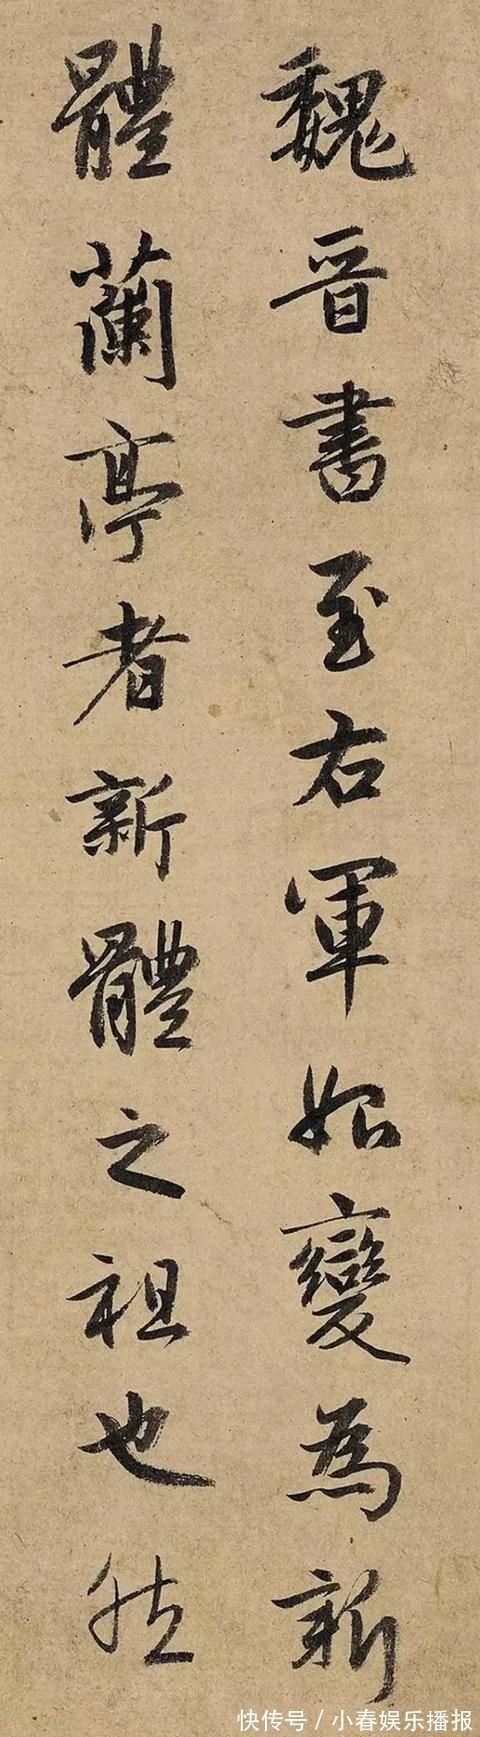 魏晉書至右軍始變為新
體蘭亭者新體之祖也然
快传号/小春娱乐播报